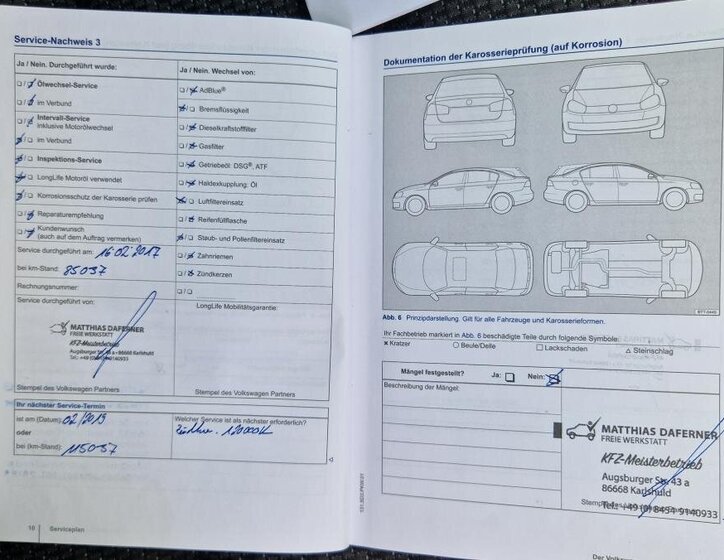 Service-Nachweis 3
Ja / Nein. Durchgeführt wurde:
❑/❑ Ölwechsel-Service
❑/❑ im Verbund
❑/❑ Intervall-Service
inklusive Motorölwechsel
❑/❑ im Verbund
❑/❑ Inspektions-Service
❑/❑ LongLife Motoröl verwendet
❑/❑ Korrosionsschutz der Karosserie prüfen
❑/❑ Reparaturempfehlung
❑/❑ Kundenwunsch
(auch auf dem Auftrag vermerken)
Service durchgeführt am: 16.02.2017
bei km-Stand: 85037
Rechnungsnummer:
Service durchgeführt von:
MATTHIAS DAFERNER
FREIE WERKSTATT
KFZ-Meisterbetrieb
Augsburger Str. 43 a 86668 Karlshuld
Tel.: +49 (0) 8454 9140933
Stempel des Volkswagen Partners
Ja / Nein. Wechsel von:
❑/❑ AdBlue®
❑/❑ Bremsflüssigkeit
❑/❑ Dieselkraftstofffilter
❑/❑ Gasfilter
❑/❑ Getriebeöl: DSG®, ATF
❑/❑ Haldexkupplung: Öl
❑/❑ Luftfiltereinsatz
❑/❑ Reifenfüllflasche
❑/❑ Staub- und Pollenfiltereinsatz
❑/❑ Zahnriemen
❑/❑ Zündkerzen
❑/❑
LongLife Mobilitätsgarantie:
Stempel des Volkswagen Partners
Ihr nächster Service-Termin
ist am (Datum): 02/2019
oder
bei (km-Stand): 115037
Welcher Service ist als nächster erforderlich?
120000
10 | Serviceplan
Dokumentation der Karosserieprüfung (auf Korrosion)
Abb. 6 Prinzipdarstellung. Gilt für alle Fahrzeuge und Karosserieformen.
Ihr Fachbetrieb markiert in Abb. 6 beschädigte Teile durch folgende Symbole:
× Kratzer ○ Beule/Delle ❑ Lackschaden △ Steinschlag
Mängel festgestellt? Ja: ❑ Nein: ❑
Beschreibung der Mängel:
MATTHIAS DAFERNER
FREIE WERKSTATT
KFZ-Meisterbetrieb
Augsburger Str. 43 a
86668 Karlshuld
Tel.: +49 (0) 8454 9140933